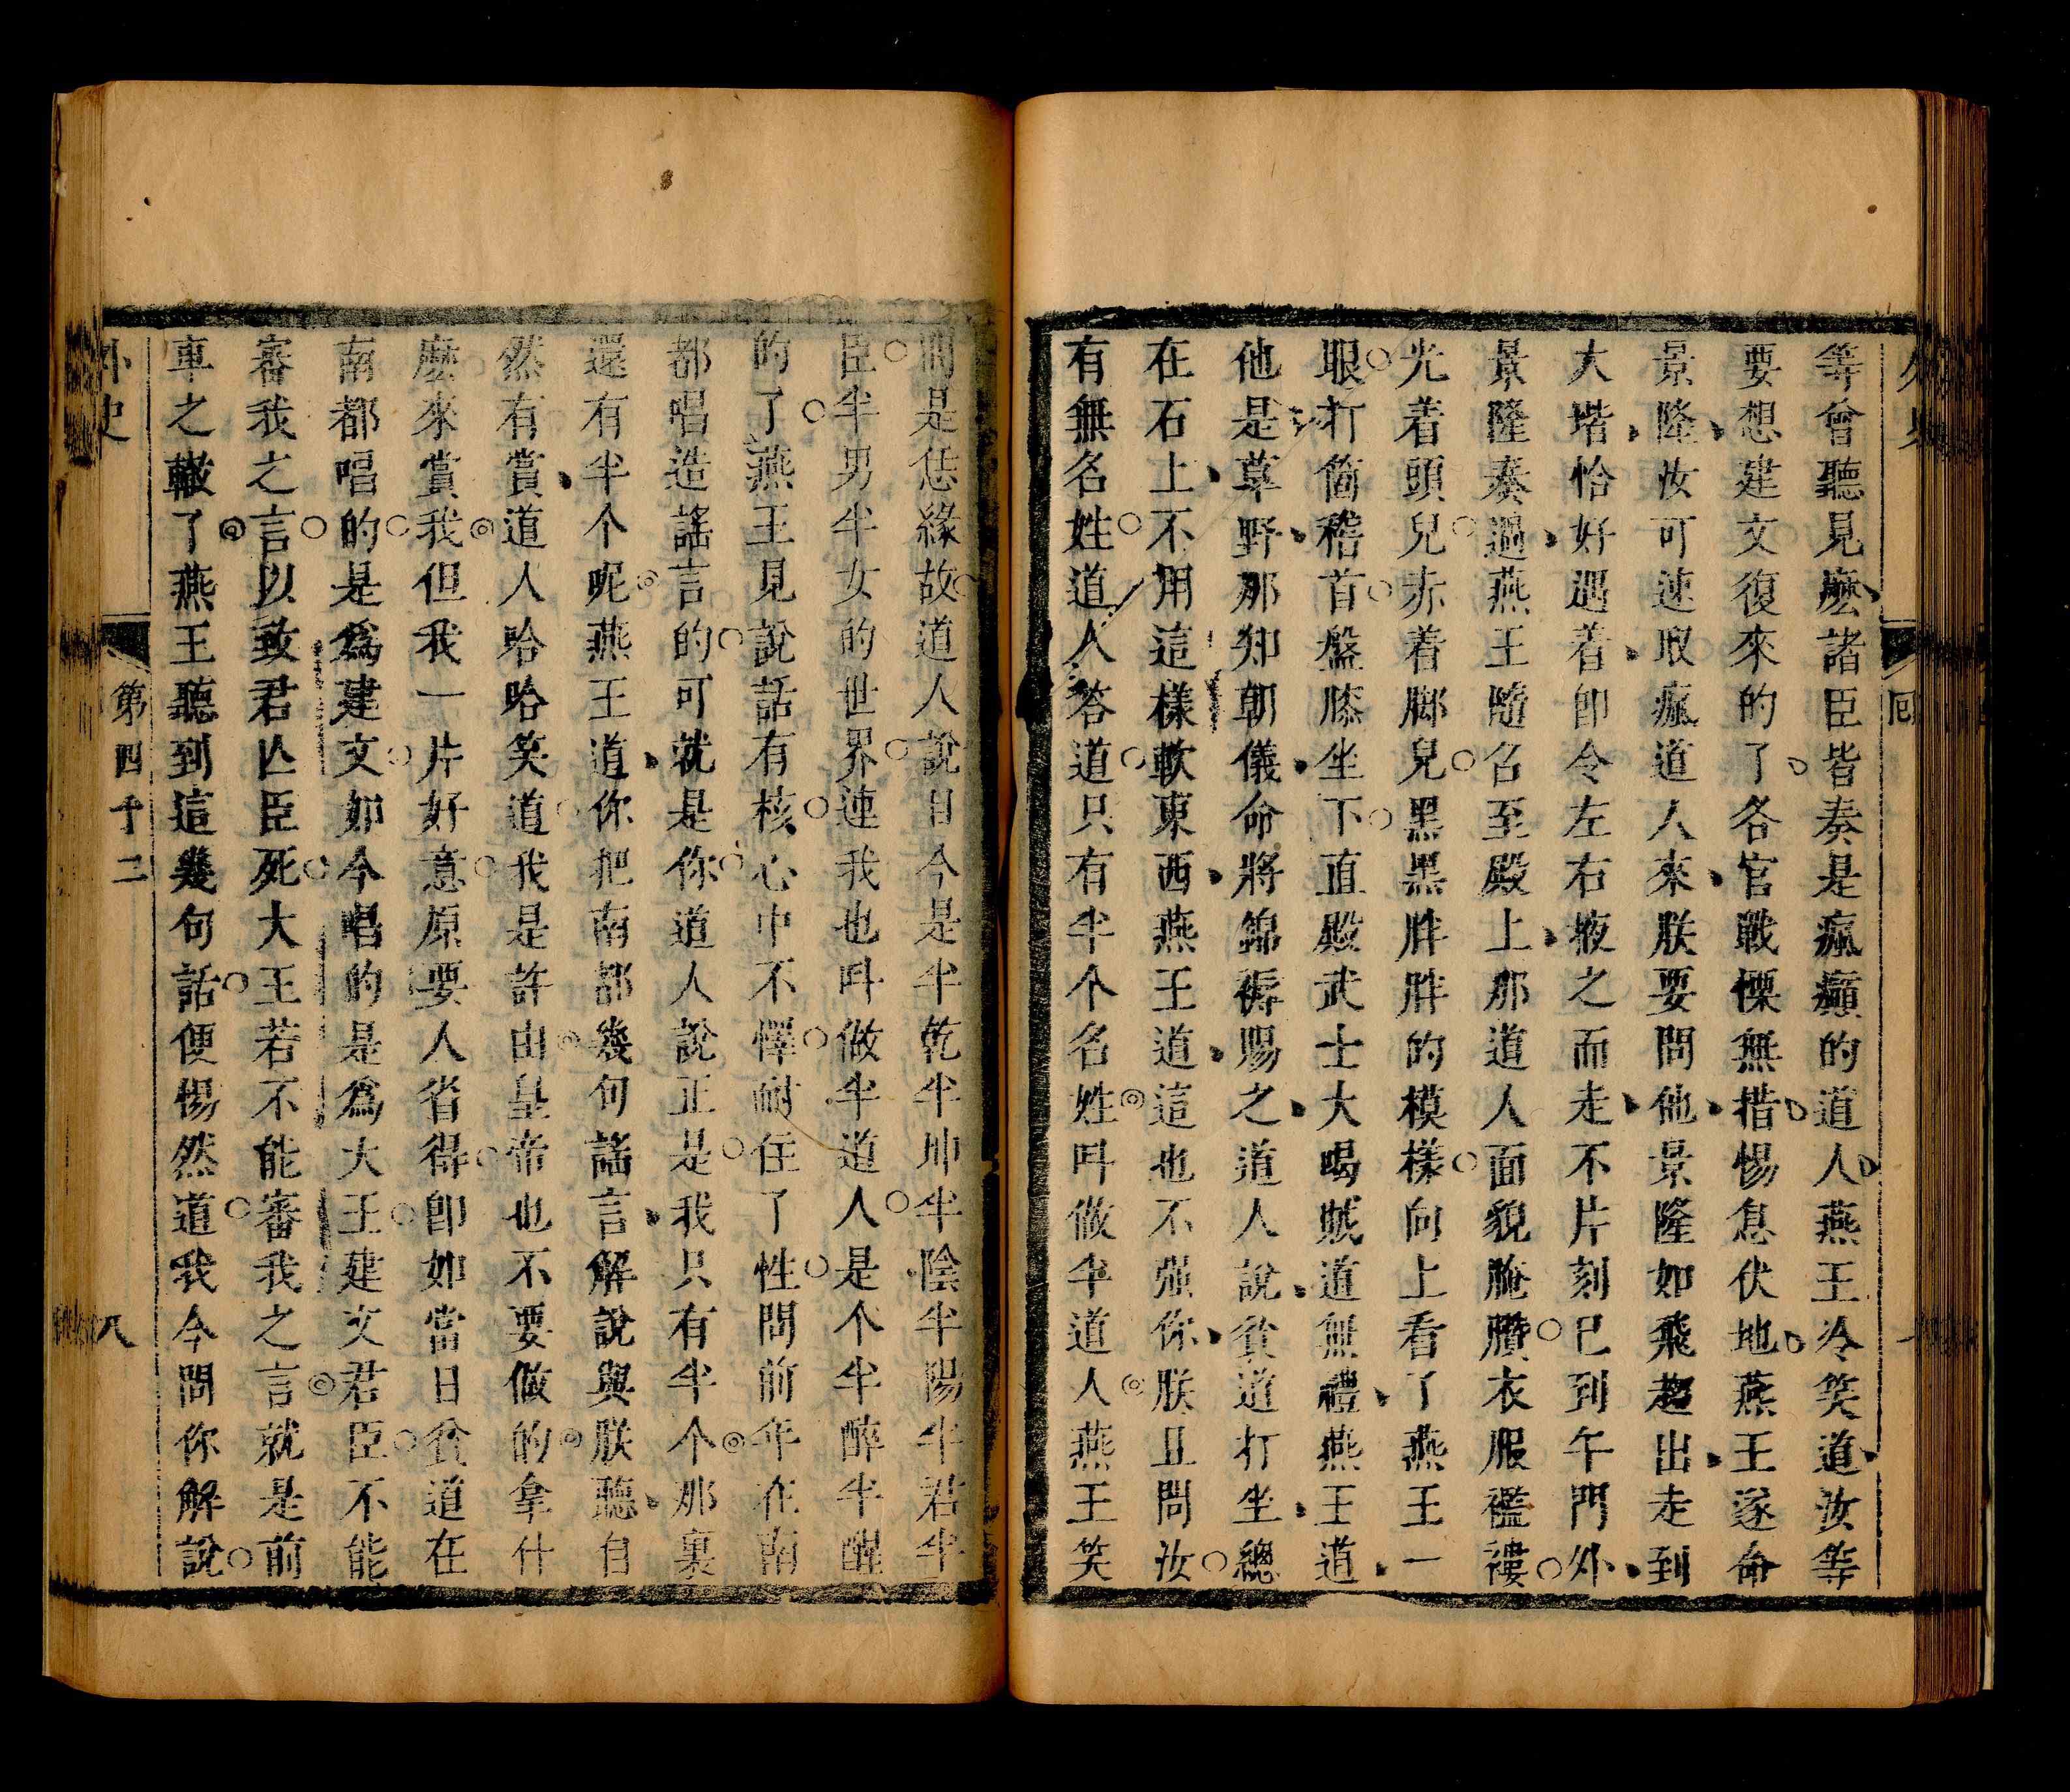 等曾聽見麽諸臣皆奏是瘋癲的道人燕王冷笑道汝等
要想建文復來的了各官戰慄無措惕息伏地燕王遂命
景隆汝可速取瘋道人來朕要問他景隆如飛趨出走到
大堦恰好遇着卽令左右掖之而走不片刻已到午門外
景隆奏過燕王隨召至殿上那道人面貌腌臢衣服襤褸
光着頭兒赤着脚兒黑黑胖胖的模樣向上看了燕王一
眼打箇稽首盤膝坐下直殿武士大喝賊道無禮燕王道
他是草野那知朝儀命將錦褥賜之道人說貧道打坐總
在石上不用這樣軟東西燕王道這也不强你朕且問汝
有無名姓道人答道只有半个名姓呌做半道人燕王笑
問是恁緣故道人說目今是半乾半坤半陰半陽半君半
臣半男半女的世界連我也呌做半道人是个半醉半醒
的了燕王見說話有核心中不懌耐住了性問前年在南
都唱造謠言的可就是你道人說正是我只有半个那裏
還有半个呢燕王道你把南都幾句謠言解說與朕聽自
然有賞道人哈哈笑道我是許由皇帝也不要做的拿什
麽來賞我但我一片好意原要人省得卽如當日貧道在
南都唱的是爲建文如今唱的是爲大王建文君臣不能
審我之言以致君亾臣死大王若不能審我之言就是前
車之轍了燕王聽到這幾句話便惕然道我今問你解說
外史
第四十二
八